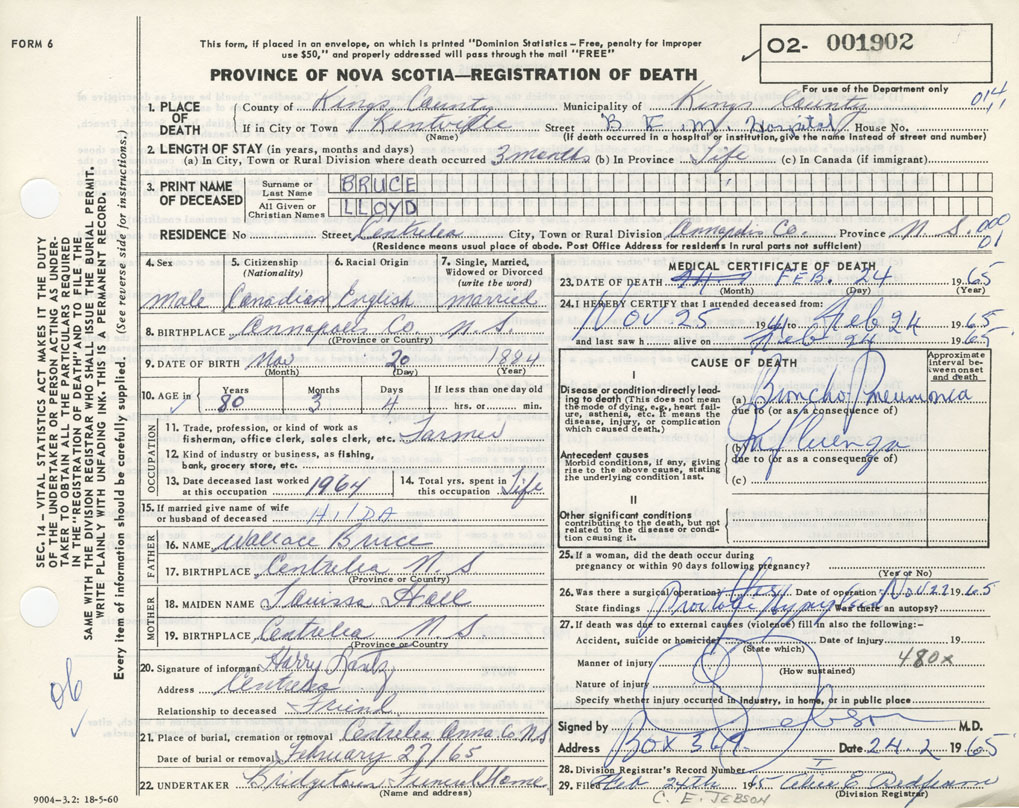 FORM 6
This form, if placed in an envelope, on which is printed "Dominion Statistics – Free, penalty for improper
use $50," and properly addressed will pass through the mail "FREE"
PROVINCE OF NOVA SCOTIA—REGISTRATION OF DEATH
02- 001902
For use of the Department only
1. PLACE OF DEATH County of Kings County Municipality of Kings County
If in City or Town Kentville Street B F M Hospital House No.
(Name) (If death occurred in a hospital or institution, give name instead of street and number)
2. LENGTH OF STAY (in years, months and days)
(a) In City, Town or Rural Division where death occurred 3 months (b) In Province Life (c) In Canada (if immigrant)
3. PRINT NAME OF DECEASED Surname or Last Name BRUCE
All Given or Christian Names LLOYD
RESIDENCE No Street Centrelea City, Town or Rural Division Annapolis Co. Province N. S.
(Residence means usual place of abode. Post Office Address for residents in rural parts not sufficient)
000
01
4. Sex 5. Citizenship (Nationality) 6. Racial Origin 7. Single, Married, Widowed or Divorced (write the word)
male Canadian English married
8. BIRTHPLACE Annapolis Co N. S.
(Province or Country)
9. DATE OF BIRTH Nov 20 1884
(Month) (Day) (Year)
10. AGE in Years 80 Months 3 Days 4 If less than one day old hrs. or min.
OCCUPATION
11. Trade, profession or kind of work as fisherman, office clerk, sales clerk, etc. Farmer
12. Kind of industry or business, as fishing, bank, grocery store, etc.
13. Date deceased last worked at this occupation 1964 14. Total yrs. spent in this occupation Life
15. If married give name of wife or husband of deceased HILDA
FATHER
16. NAME Wallace Bruce
17. BIRTHPLACE Centrelea N. S
(Province or Country)
MOTHER
18. MAIDEN NAME Louissa Hall
19. BIRTHPLACE Centrelea N S.
(Province or Country)
20. Signature of informant Harry Lantz
Address Centrelea
Relationship to deceased Friend
21. Place of burial, cremation or removal Centrelea Anna Co N S
Date of burial or removal February 27/65
22. UNDERTAKER Bridgetown Funeral Home
(Name and address)
MEDICAL CERTIFICATE OF DEATH
23. DATE OF DEATH FEB. 24 1965
(Month) (Day) (Year)
24. I HEREBY CERTIFY that I attended deceased from:
Nov 25 1964 to Feb 24 1965
and last saw h alive on Feb 24 1965
CAUSE OF DEATH
Approximate interval between onset and death
I
Disease or condition directly leading to death (This does not mean the mode of dying, e.g., heart failure, asthenia, etc. It means the disease, injury, or complication which caused death.)
(a) Broncho Pneumonia
due to (or as a consequence of)
Antecedent causes
Morbid conditions, if any, giving rise to the above cause, stating the underlying condition last.
(b) Influenza
due to (or as a consequence of)
(c)
II
Other significant conditions contributing to the death, but not related to the disease or condition causing it.
25. If a woman, did the death occur during pregnancy or within 90 days following pregnancy?
(Yes or No)
26. Was there a surgical operation? Yes Date of operation Nov 27 1965
State findings Prostate Was there an autopsy?
27. If death was due to external causes (violence) fill in also the following:–
Accident, suicide or homicide Date of injury 19
(State which)
Manner of injury 480x
(How sustained)
Nature of injury
Specify whether injury occurred in industry, in home, or in public place
Signed by Jebson M.D.
Address BOX 369 Date 24.2 1965
28. Division Registrar's Record Number
29. Filed Feb 24th 1965
(Division Registrar)
C. E. JEBSON
SEC. 14 – VITAL STATISTICS ACT MAKES IT THE DUTY
OF THE UNDERTAKER OR PERSON ACTING AS UNDER-
TAKER TO OBTAIN ALL THE PARTICULARS REQUIRED
IN THE "REGISTRATION OF DEATH" AND TO FILE THE
SAME WITH THE DIVISION REGISTRAR WHO SHALL ISSUE THE BURIAL PERMIT.
WRITE PLAINLY WITH UNFADING INK. THIS IS A PERMANENT RECORD.
Every item of information should be carefully supplied. (See reverse side for instructions.)
9004-3.2: 18-5-60